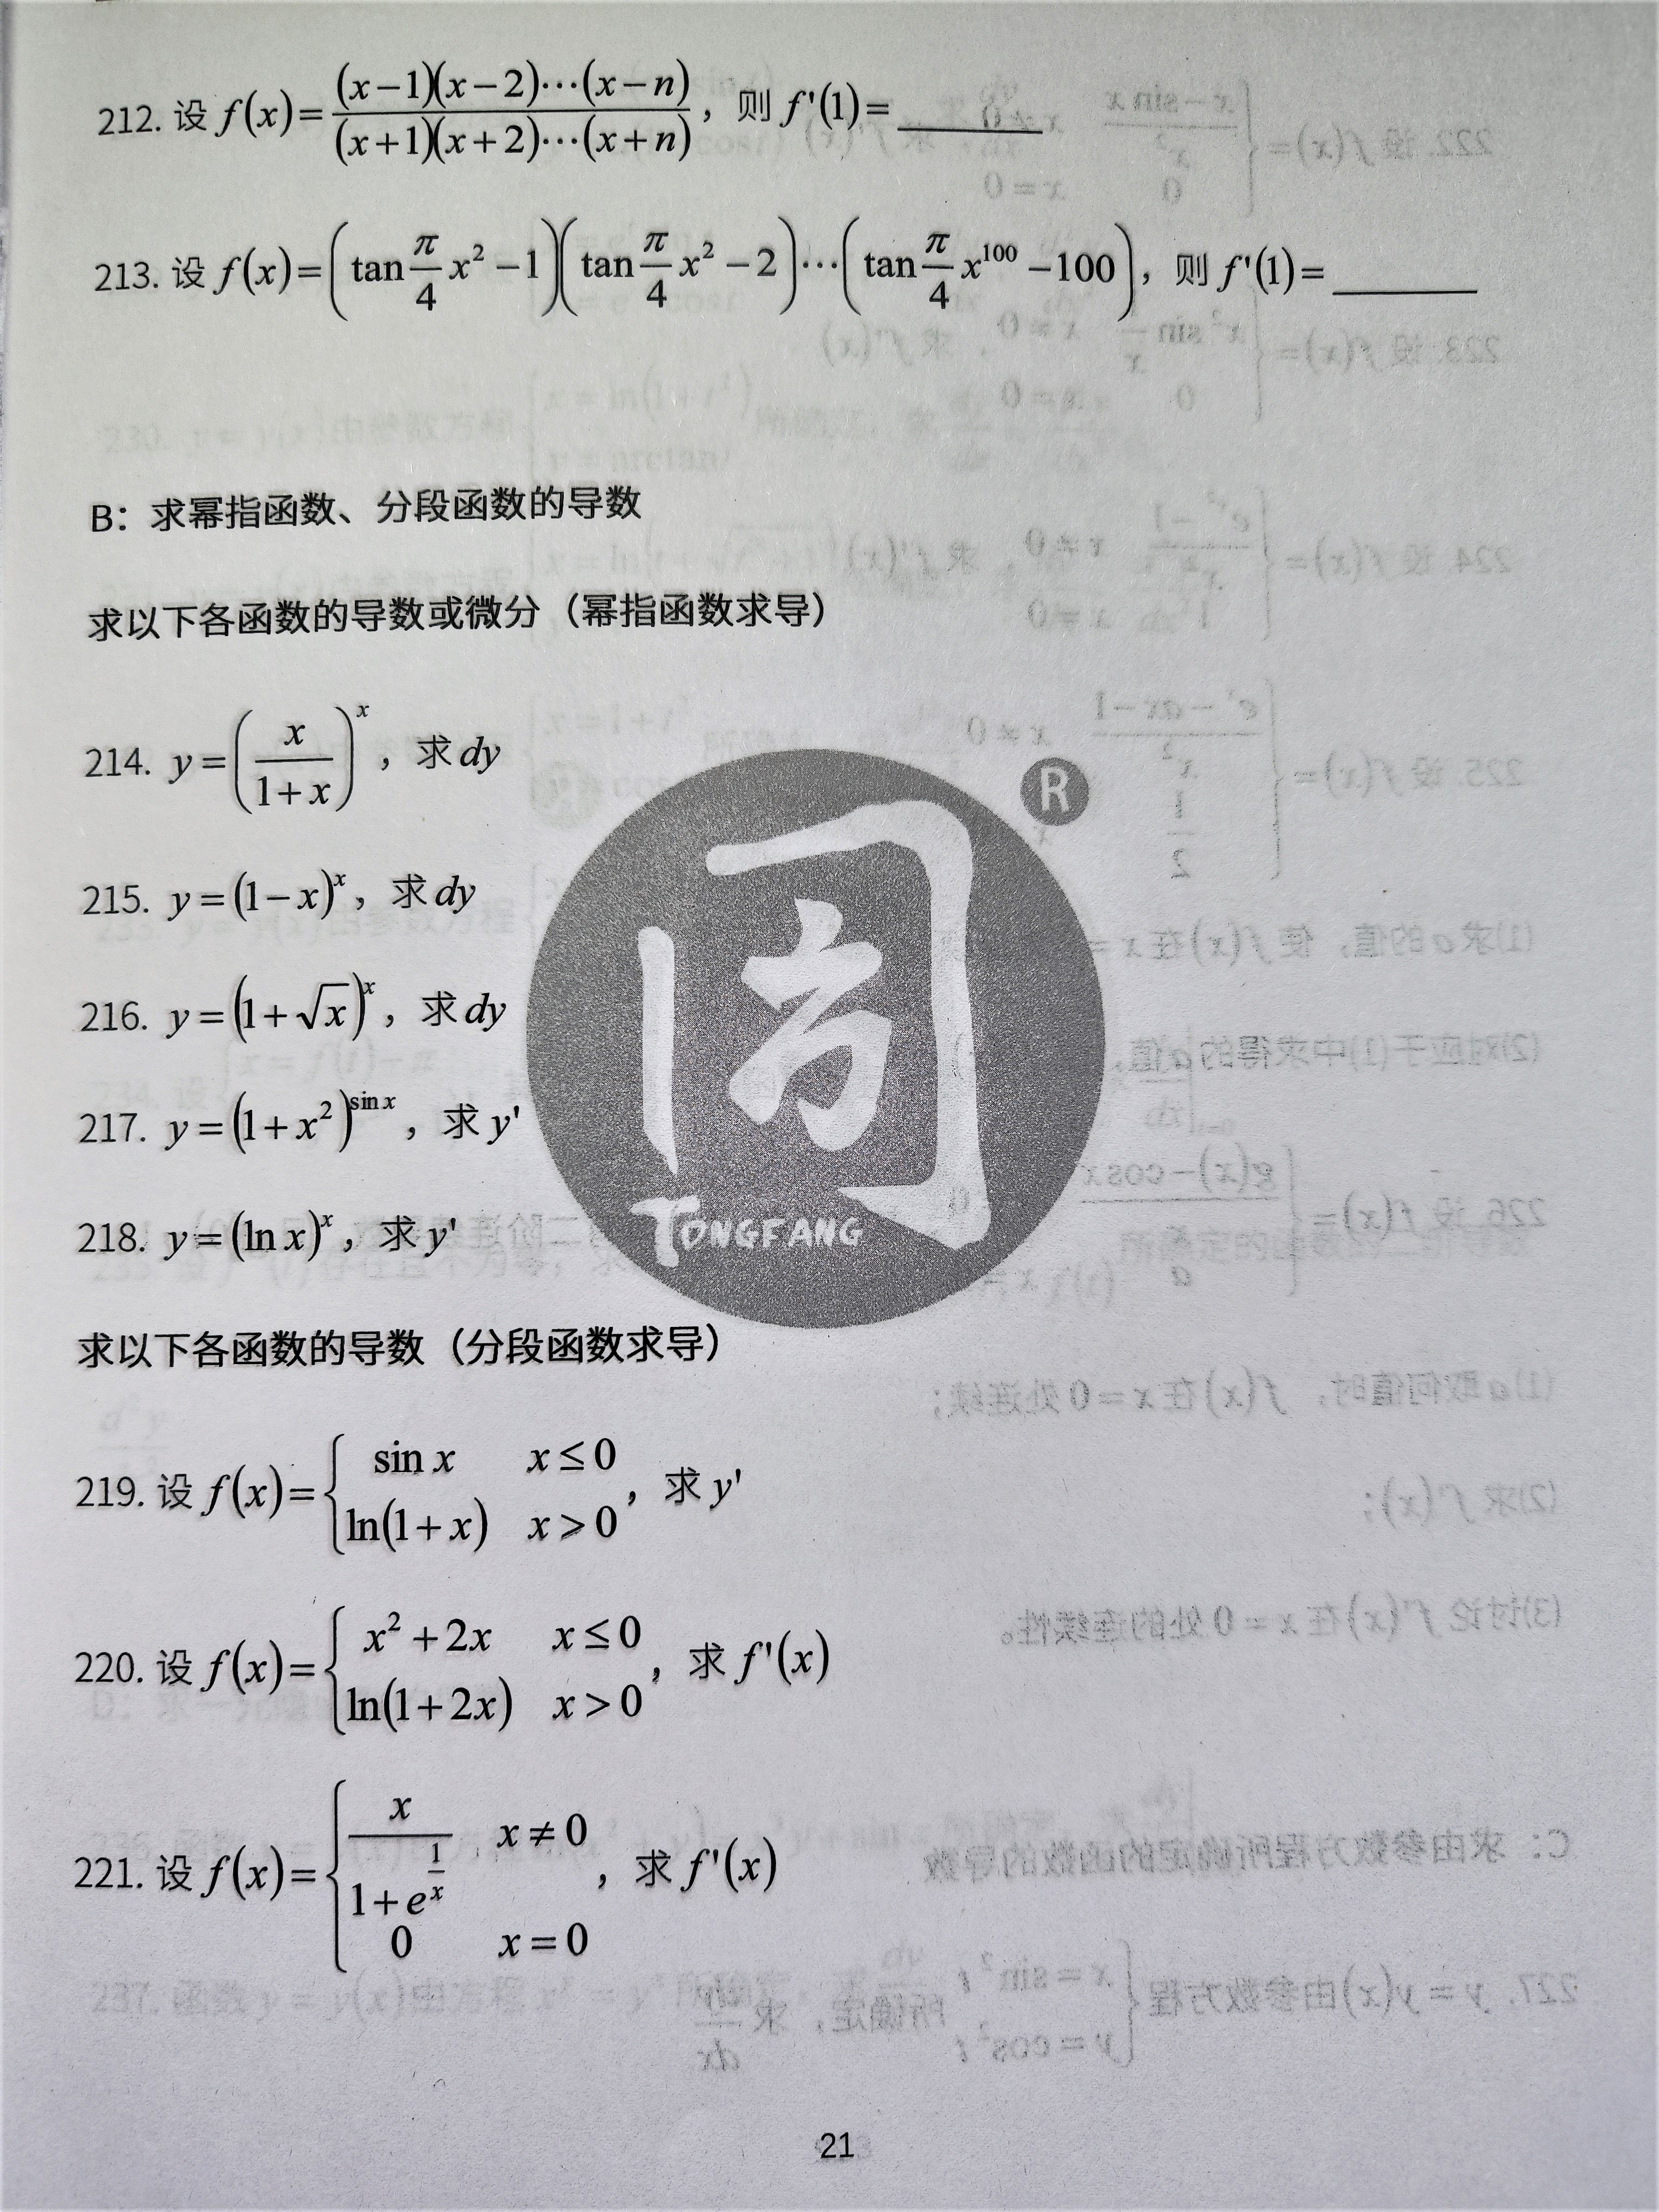 212. 设 f(x)= (x−1)(x−2)⋯(x−n) / (x+1)(x+2)⋯(x+n) ，则 f'(1)= ______
213. 设 f(x)= (tan π/4 x² −1)(tan π/4 x² −2)⋯(tan π/4 x¹⁰⁰ −100)，则 f'(1)= ______
B：求幂指函数、分段函数的导数
求以下各函数的导数或微分（幂指函数求导）
214. y = (x/(1+x))^x ，求 dy
215. y = (1−x)^x ，求 dy
216. y = (1+√x)^x ，求 dy
217. y = (1+x²)^(sin x) ，求 y'
218. y = (ln x)^x ，求 y'
求以下各函数的导数（分段函数求导）
219. 设 f(x)= { sin x  x ≤ 0
ln(1+x)  x > 0 ，求 y'
220. 设 f(x)= { x² + 2x  x ≤ 0
ln(1+2x)  x > 0 ，求 f'(x)
221. 设 f(x)= { x/(1+e^(1/x))  x ≠ 0
0  x = 0 ，求 f'(x)
同方 ®
TONGFANG
21